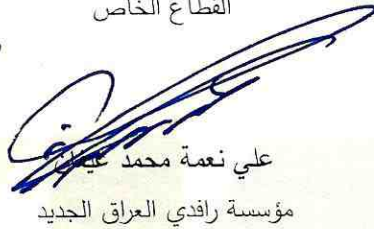 القطاع الخاص
علي نعمة محمد
مؤسسة رافدي العراق الجديد